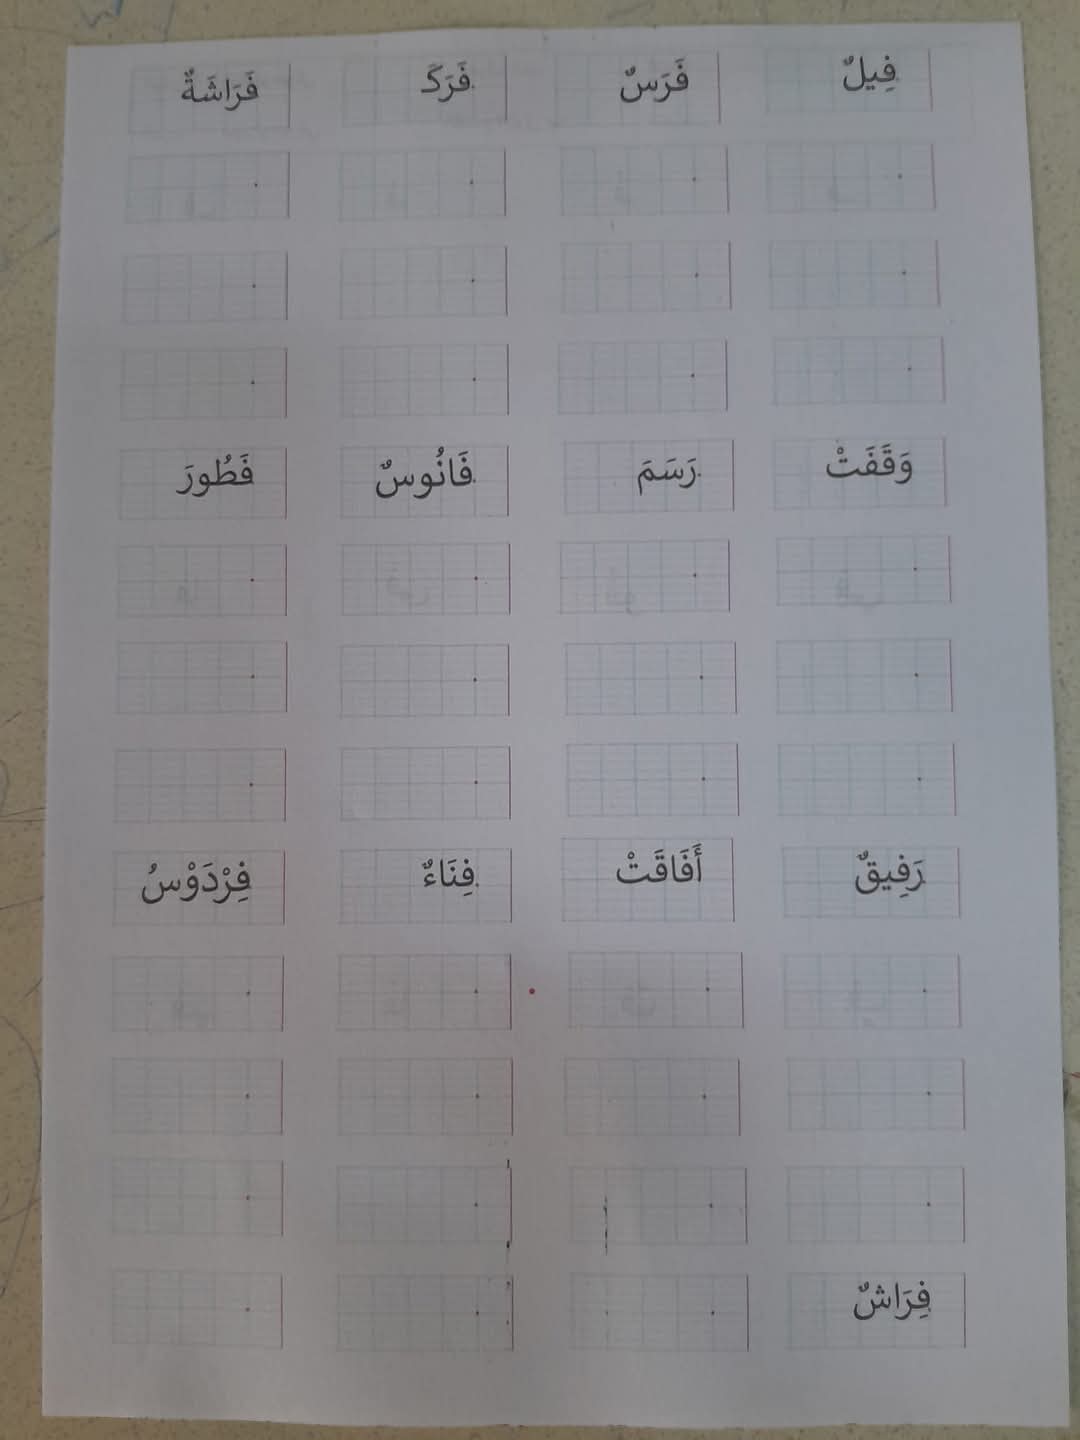 فِيلٌ فَرَسٌ فَرَكَ فَرَاشَةٌ
وَقَفَتْ رَسَمَ فَانُوسٌ فَطُورَ
رَفِيقٌ أَفَاقَتْ فِنَاءٌ فِرْدَوْسُ
فِرَاشٌ